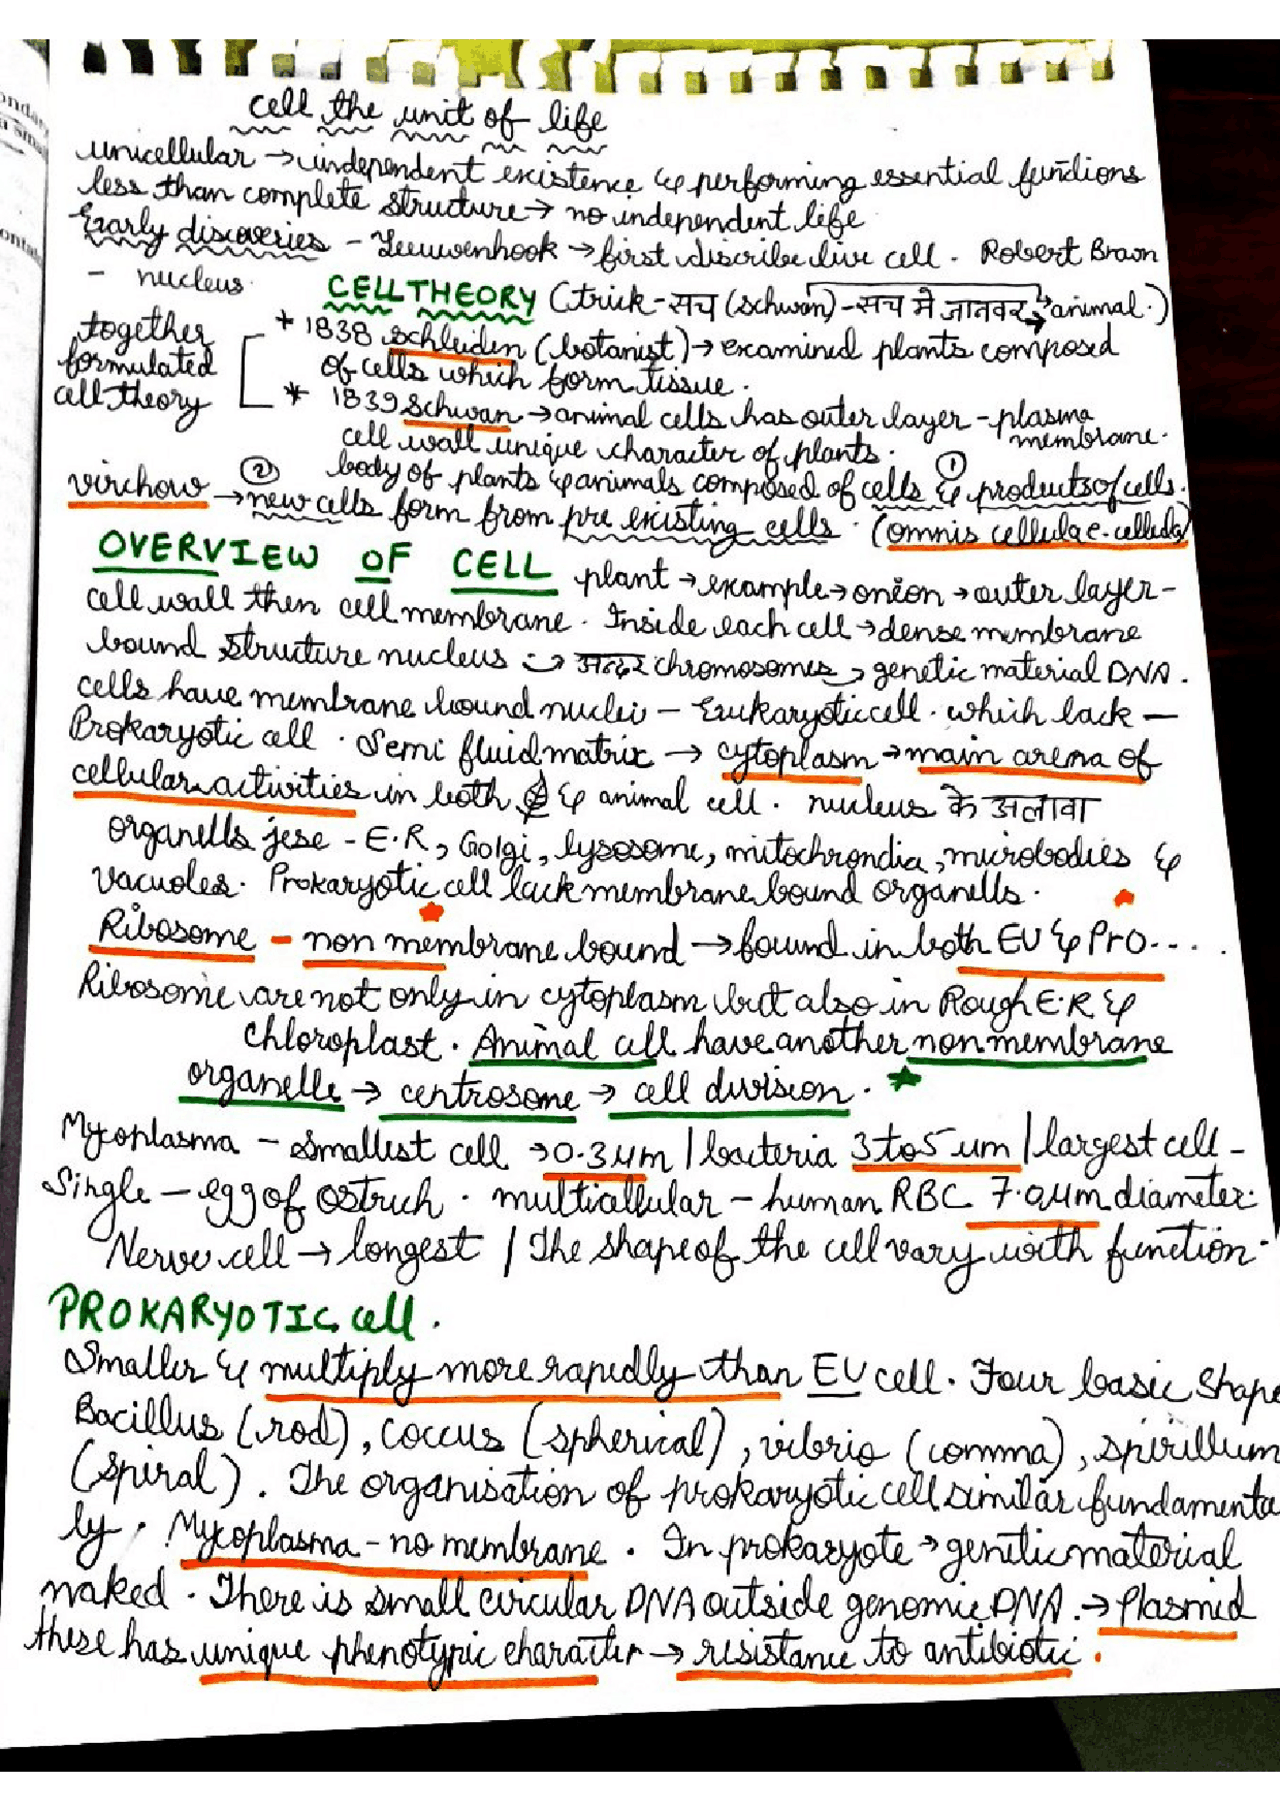 cell the unit of life
unicellular → independent existence & performing essential functions
less than complete structure → no independent life
Early discoveries - Leeuwenhook → first discribe live cell. Robert Brown
- nucleus.
CELL THEORY (trick - सच (schwan) - सच मे जानवर → animal.)
together formulated cell theory
* 1838 schleiden (botanist) → examined plants composed
of cells which form tissue.
* 1839 Schwan → animal cells has outer layer - plasma membrane.
cell wall unique character of plants.
② body of plants & animals composed of cells & ① products of cells.
virchow → new cells form from pre existing cells. (omnis cellula e-cellula)
OVERVIEW OF CELL plant → example → onion → outer layer -
cell wall then cell membrane. Inside each cell → dense membrane
bound structure nucleus → अन्दर chromosomes → genetic material DNA.
cells have membrane bound nuclei - Eukaryotic cell. which lack -
Prokaryotic cell. Semi fluid matrix → cytoplasm → main arena of
cellular activities in both & animal cell. nucleus के अलावा
organells jese - E.R, Golgi, lysosome, mitochrondia, microbodies &
vacuoles. Prokaryotic cell lack membrane bound organells.
Ribosome - non membrane bound → found in both EU & Pro....
Ribosome are not only in cytoplasm but also in Rough E.R &
chloroplast. Animal cell have another non membrane
organelle → centrosome → cell division.
Mycoplasma - smallest cell → 0.3 µm | bacteria 3 to 5 um | largest cell -
Single - egg of ostrich. multicellular - human RBC 7.0µm diameter.
Nerve cell → longest / The shape of the cell vary with function.
PROKARYOTIC cell.
Smaller & multiply more rapedly than EU cell. Four basic shape
Bacillus (rod), coccus (spherical), vibrio (comma), spirillum
(spiral). The organisation of prokaryotic cell similar fundamenta
ly. Mycoplasma - no membrane. In prokaryote → genetic material
naked. There is small circular DNA outside genomic DNA. → Plasmid
these has unique phenotypic eharacter → resistance to antibiotic.